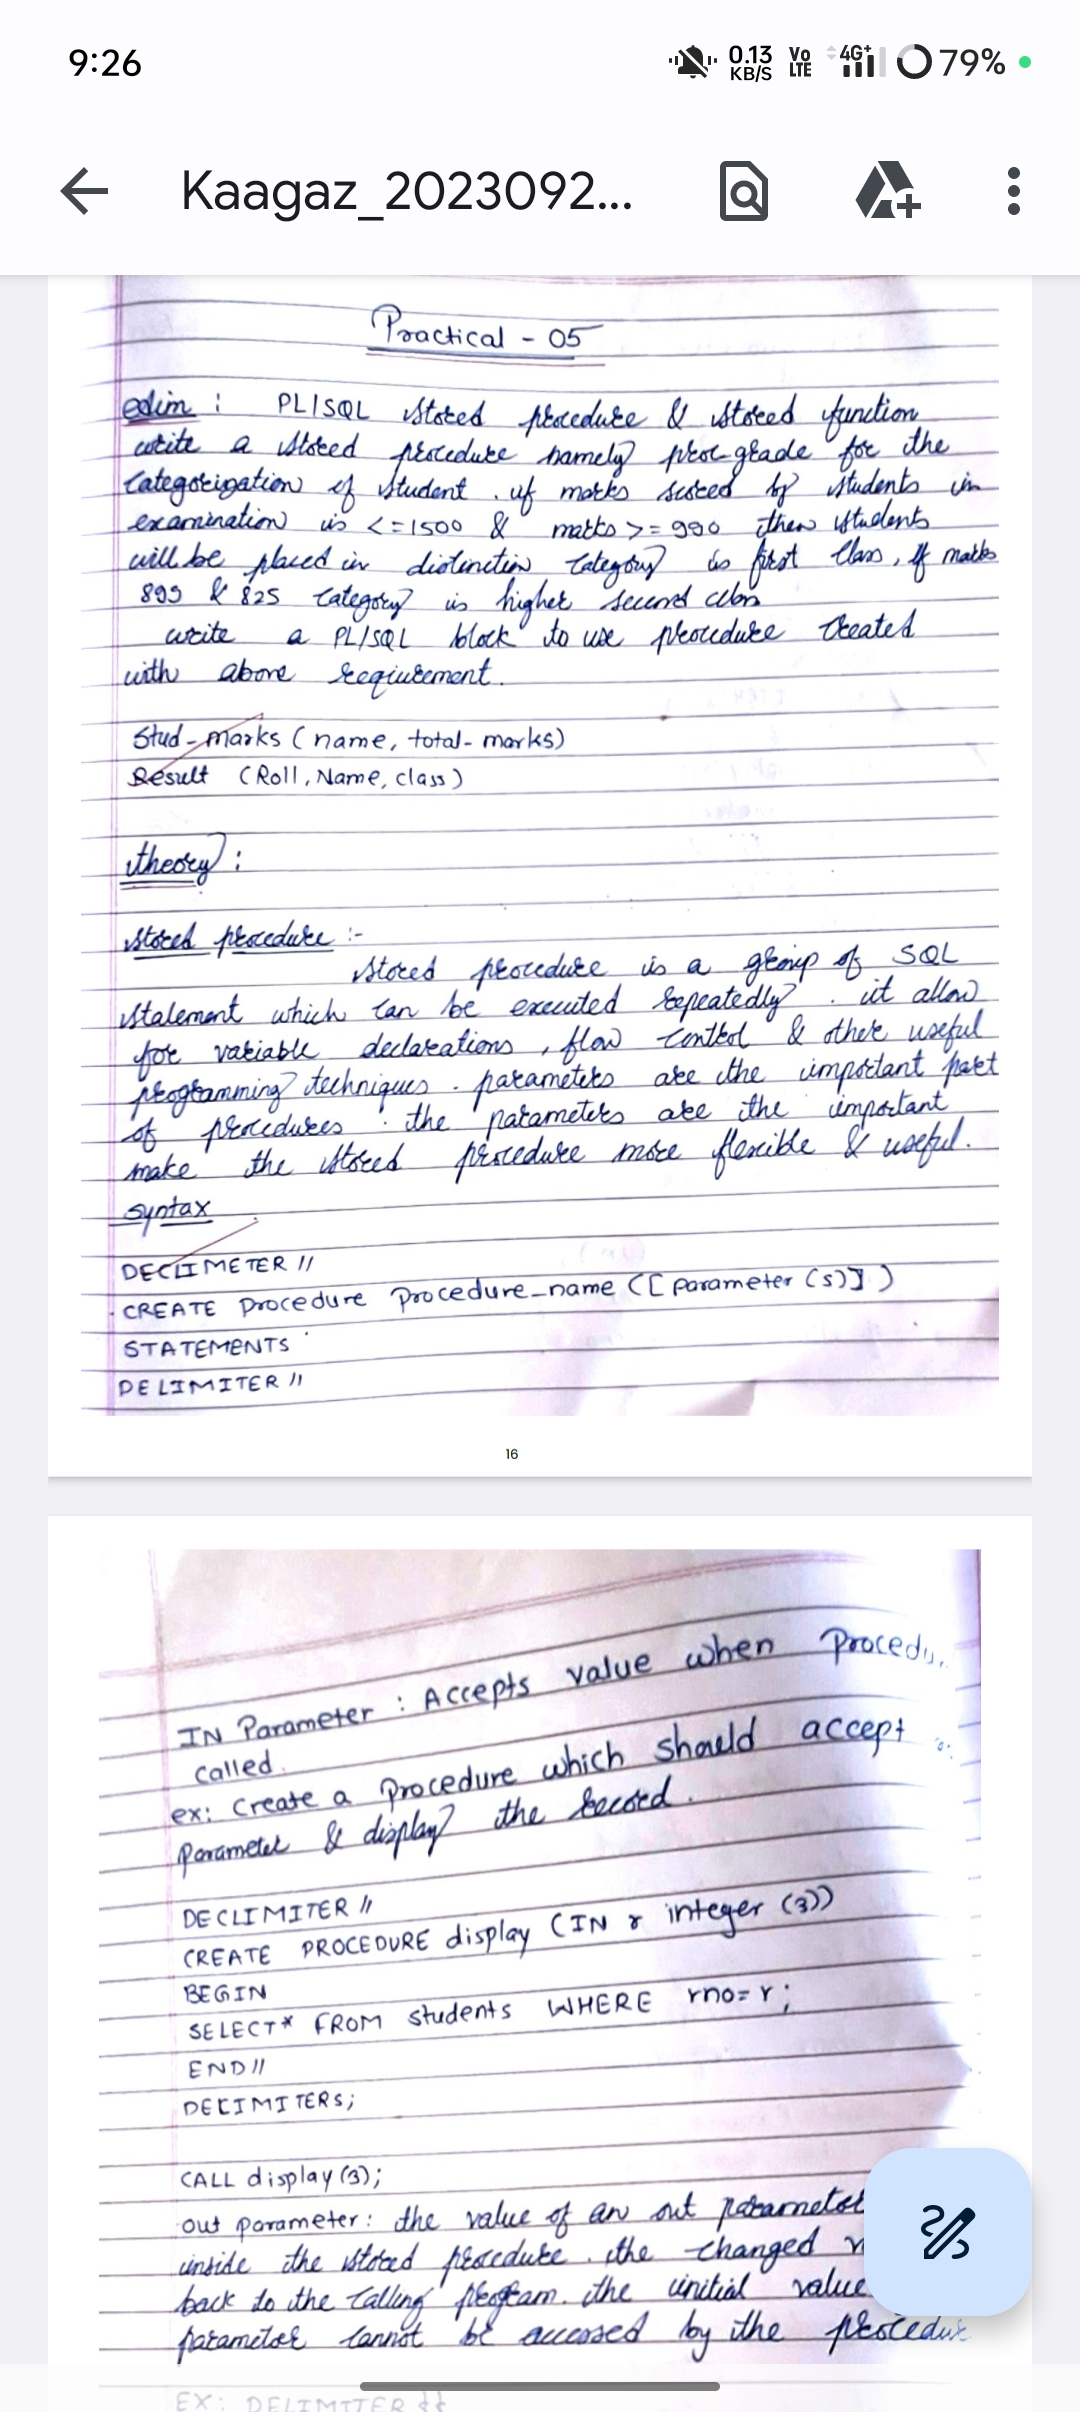 9:26 0.13 KB/S Vo LTE 4G+ 79%
Kaagaz_2023092...
Practical - 05
Aim : PL/SQL Stored procedure & stored function
write a stored procedure namely proc-grade for the
categorization of student . if marks scored by students in
examination is <=1500 & marks >= 990 then students
will be placed in distinction category is first class, if marks
899 & 825 category is higher second class
write a PL/SQL block to use procedure created
with above requirement.
Stud-marks (name, total-marks)
Result (Roll, Name, class)
theory :
Stored procedure :-
Stored procedure is a group of SQL
statement which can be executed repeatedly . it allow
for variable declarations , flow control & other useful
programming techniques . parameters are the important part
of procedures . the parameters are the important
make the stored procedure more flexible & useful.
syntax
DECLIMETER //
CREATE Procedure Procedure_name ([parameter (s)])
STATEMENTS
DELIMITER //
16
IN Parameter : Accepts value when
called.
ex: Create a Procedure which should accept
Parameter & display the record.
DECLIMITER //
CREATE PROCEDURE display (IN r integer (3))
BEGIN
SELECT* FROM students WHERE rno=r;
END//
DELIMITERS;
CALL display(3);
out parameter: the value of an out parameter
inside the stored procedure . the changed
back to the calling program. the initial value
parameter cannot be accessed by the
EX: DELIMITER